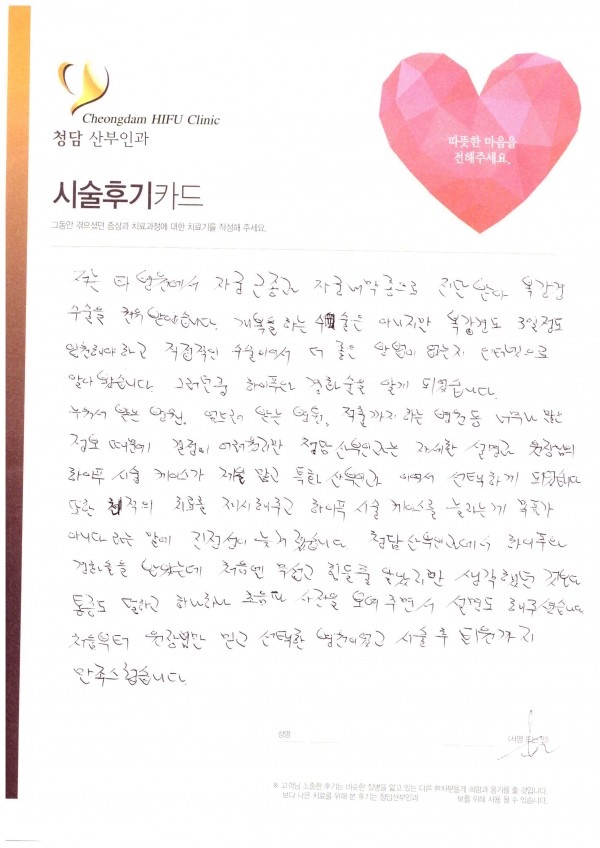 Cheongdam HIFU Clinic
청담 산부인과
따뜻한 마음을
전해주세요.
시술후기카드
그동안 겪으셨던 증상과 치료과정에 대한 치료기를 작성해 주세요.
저는 타 병원에서 자궁근종과 자궁내막종으로 진단 받아 복강경
수술을 권유 받았습니다. 개복을 하는 수술은 아니지만 복강경도 3일정도
입원해야하고 직접적인 수술이여서 더 좋은 방법이 없는지 인터넷으로
알아 봤습니다. 그러던중 하이푸와 경화술을 알게 되었습니다.
누워서 받는 병원, 엎드려 받는 병원, 적출까지 하는 병원 등 너무나 많은
정보 때문에 결정이 어려웠지만 청담산부인과는 자세한 설명과 원장님의
하이푸 시술 케이스가 제일 많고 특화 산부인과 여서 선택하게 되었습니다
또한 최적의 치료를 제시해주고 하이푸 시술 케이스를 늘리는게 목표가
아니다 라는 말에 진정성이 느껴졌습니다. 청담산부인과에서 하이푸와
경화술을 받았는데 처음엔 무섭고 힘들줄 알았지만 생각했던 것보다
통증도 덜하고 하나하나 초음파 사진을 보여주면서 설명도 해주셨습니다
처음부터 원장님만 믿고 선택한 병원이였고 시술 후 퇴원까지
만족스럽습니다.
성명
(서명 또는
※ 고객님 소중한 후기는 비슷한 질병을 앓고 있는 다른 환자분들께 희망과 용기를 줄 것입니다.
보다 나은 치료를 위해 본 후기는 청담산부인과 보를 위해 사용 될 수 있습니다.